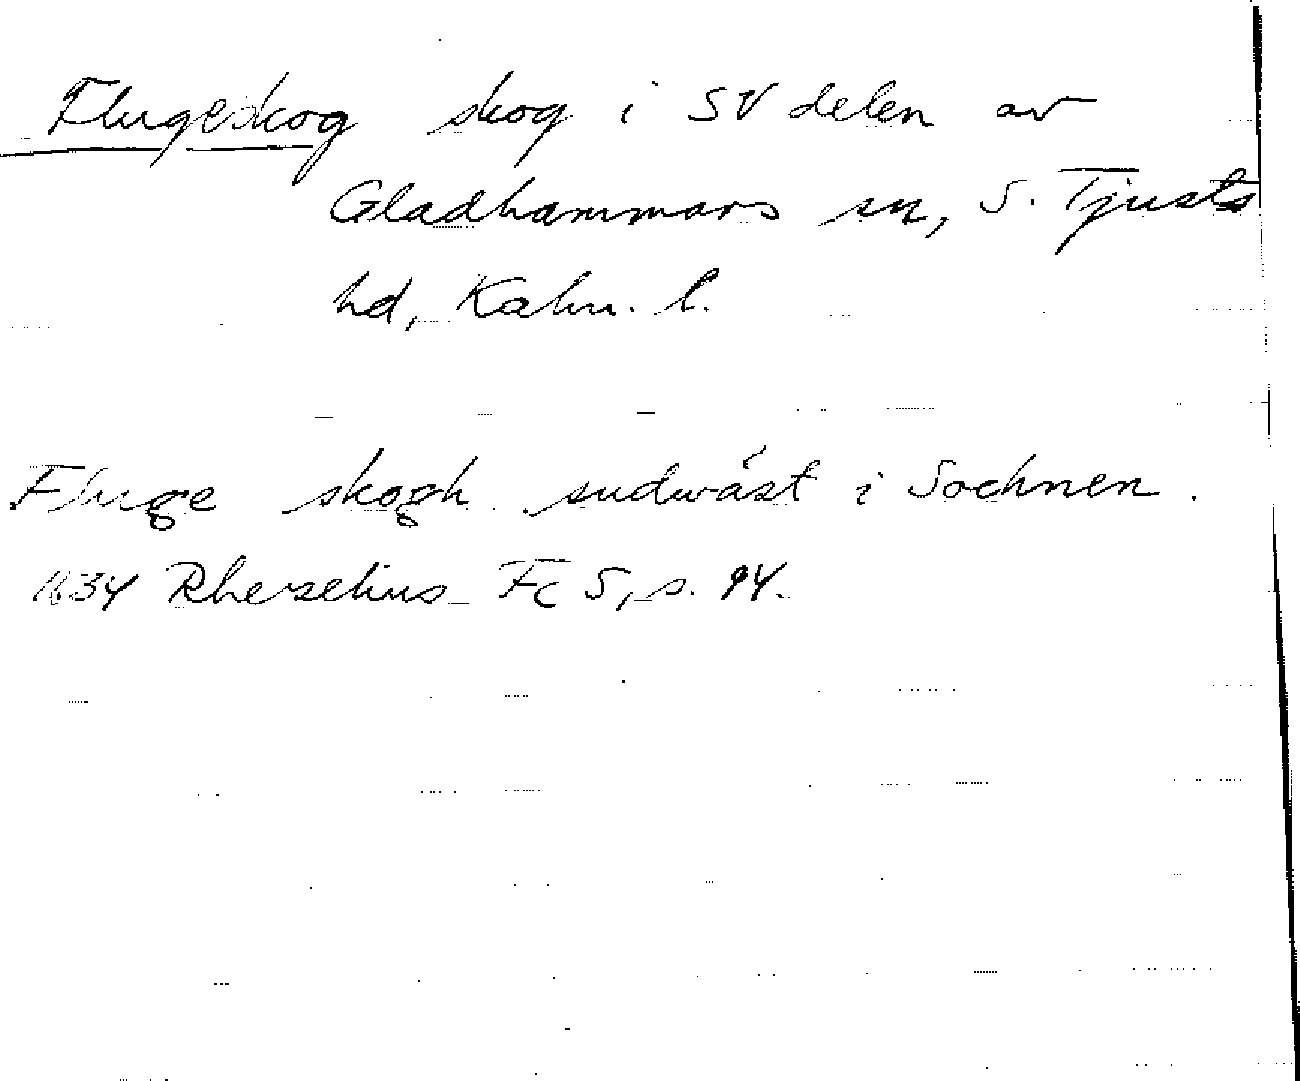 Flugeskog skog i SV delen av
Gladhammars sn, S. Tjusts
hd, Kalm. l.
Fluge skogh sudwäst i Sochnen.
1634 Rhezelius Fc 5, s. 94.